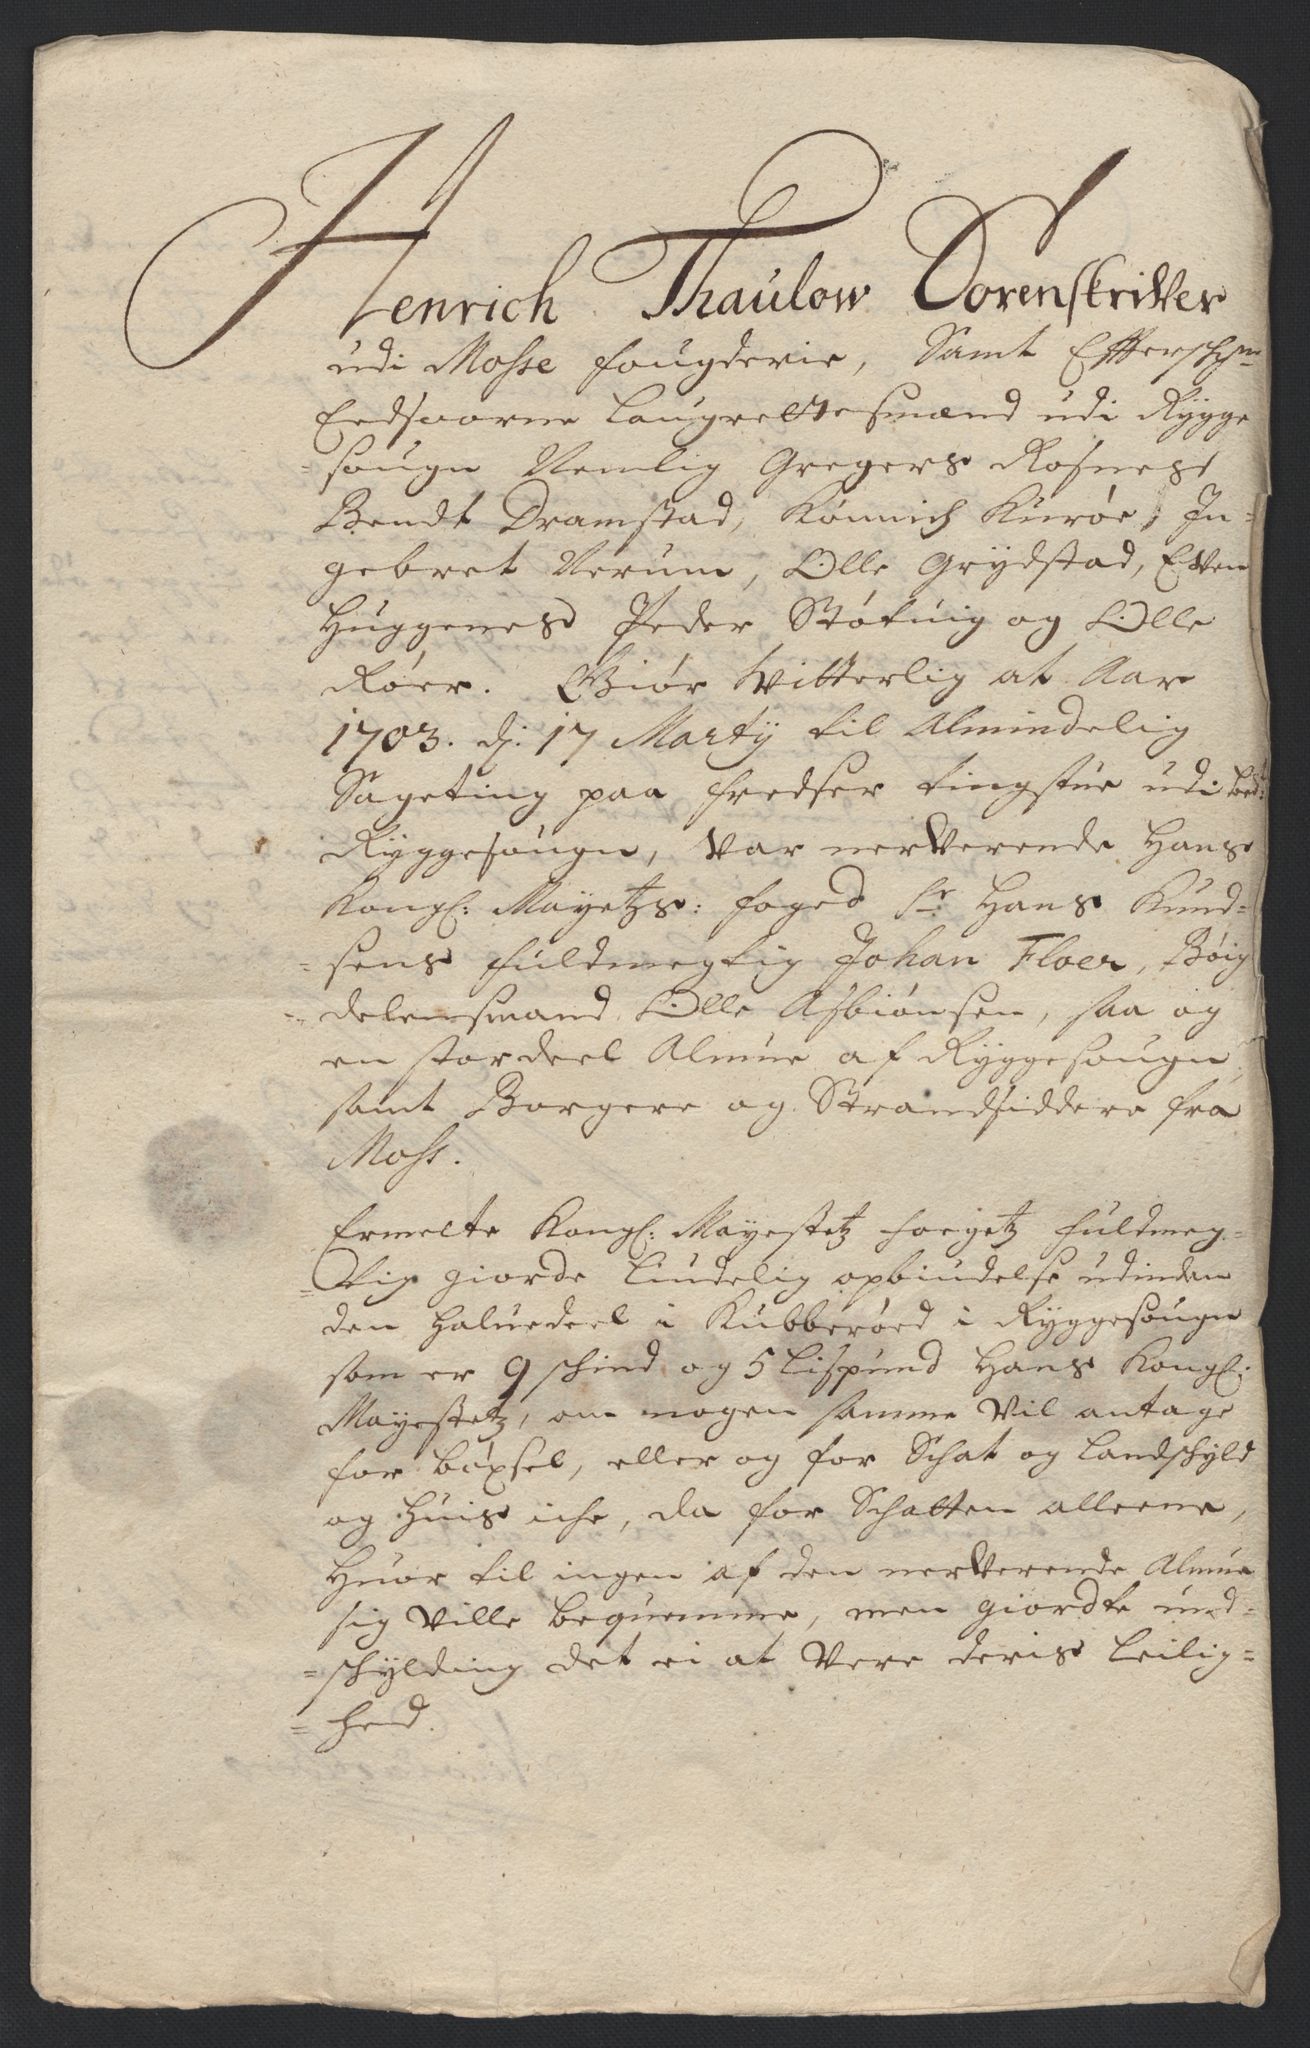 Henrich Thaulow Sorenskriver
udi Mosse fougderie, Samt Effterschr:
Eedsvorne Laugrettesmænd udi Rygge
=sougn Nemlig Gregers Rosnes
Bendt Dramstad, Kønnich Kurøe, In=
gebret Verum, Olle Grydstad, Even
Huggenes Peder Støtuig og Olle
Røer. Giør Vitterlig at Aar
1703. d: 17 Martÿ til Almindelig
Sageting paa fredser tingstue udi bemt:
Ryggesougn, Var nerVerende Hans
Kongl: Mayetz: foged Sr Hans Knud=
=sens fuldmegtig Johan Floer, Bøig
=delensmand Olle Asbiønsen, saa og
en stordeel Almue af Ryggesougn
samt Borgere og Strandsiddere fra
Moss.
Ermelte Kongl: Mayestetz foegetz fuldmeg=
=tig giorde Liudelig opbiudelse udinden
den halvedeel i Kubberøed i Ryggesougn
som er 9 schind og 5 Lispund Hans Kongl:
Mayestetz, om nogen samme Vil antage
for böxsel, eller og for Schat og Landschyld
og Huis iche, da for Schatten alleene,
Huor til ingen af den nerVerende Almue
sig Ville bequemme, men giordte und=
=schylding det ei at Vere deris Leilig=
=hed.